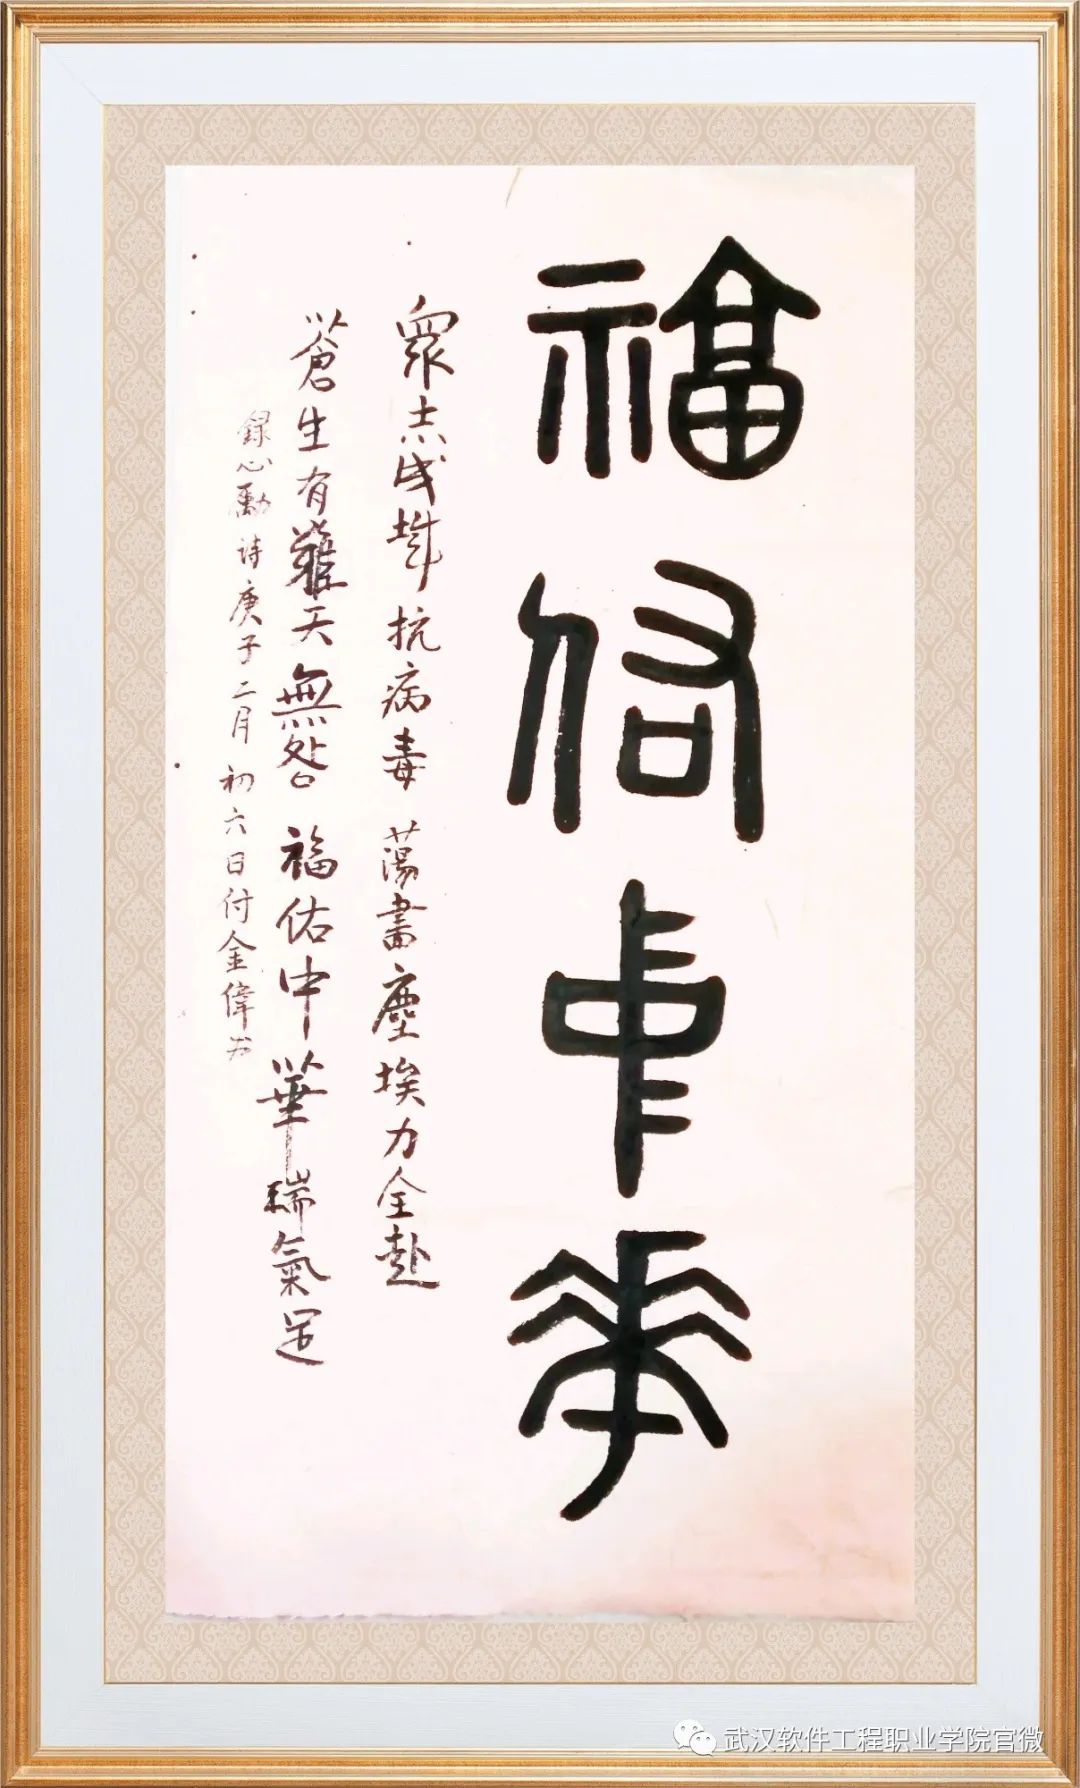 福佑中華
衆志成城抗病毒蕩盡塵埃力全赴
蒼生有難天無咎福佑中華瑞氣足
錄心勵詩庚子二月初六日付金偉书
武汉软件工程职业学院官微